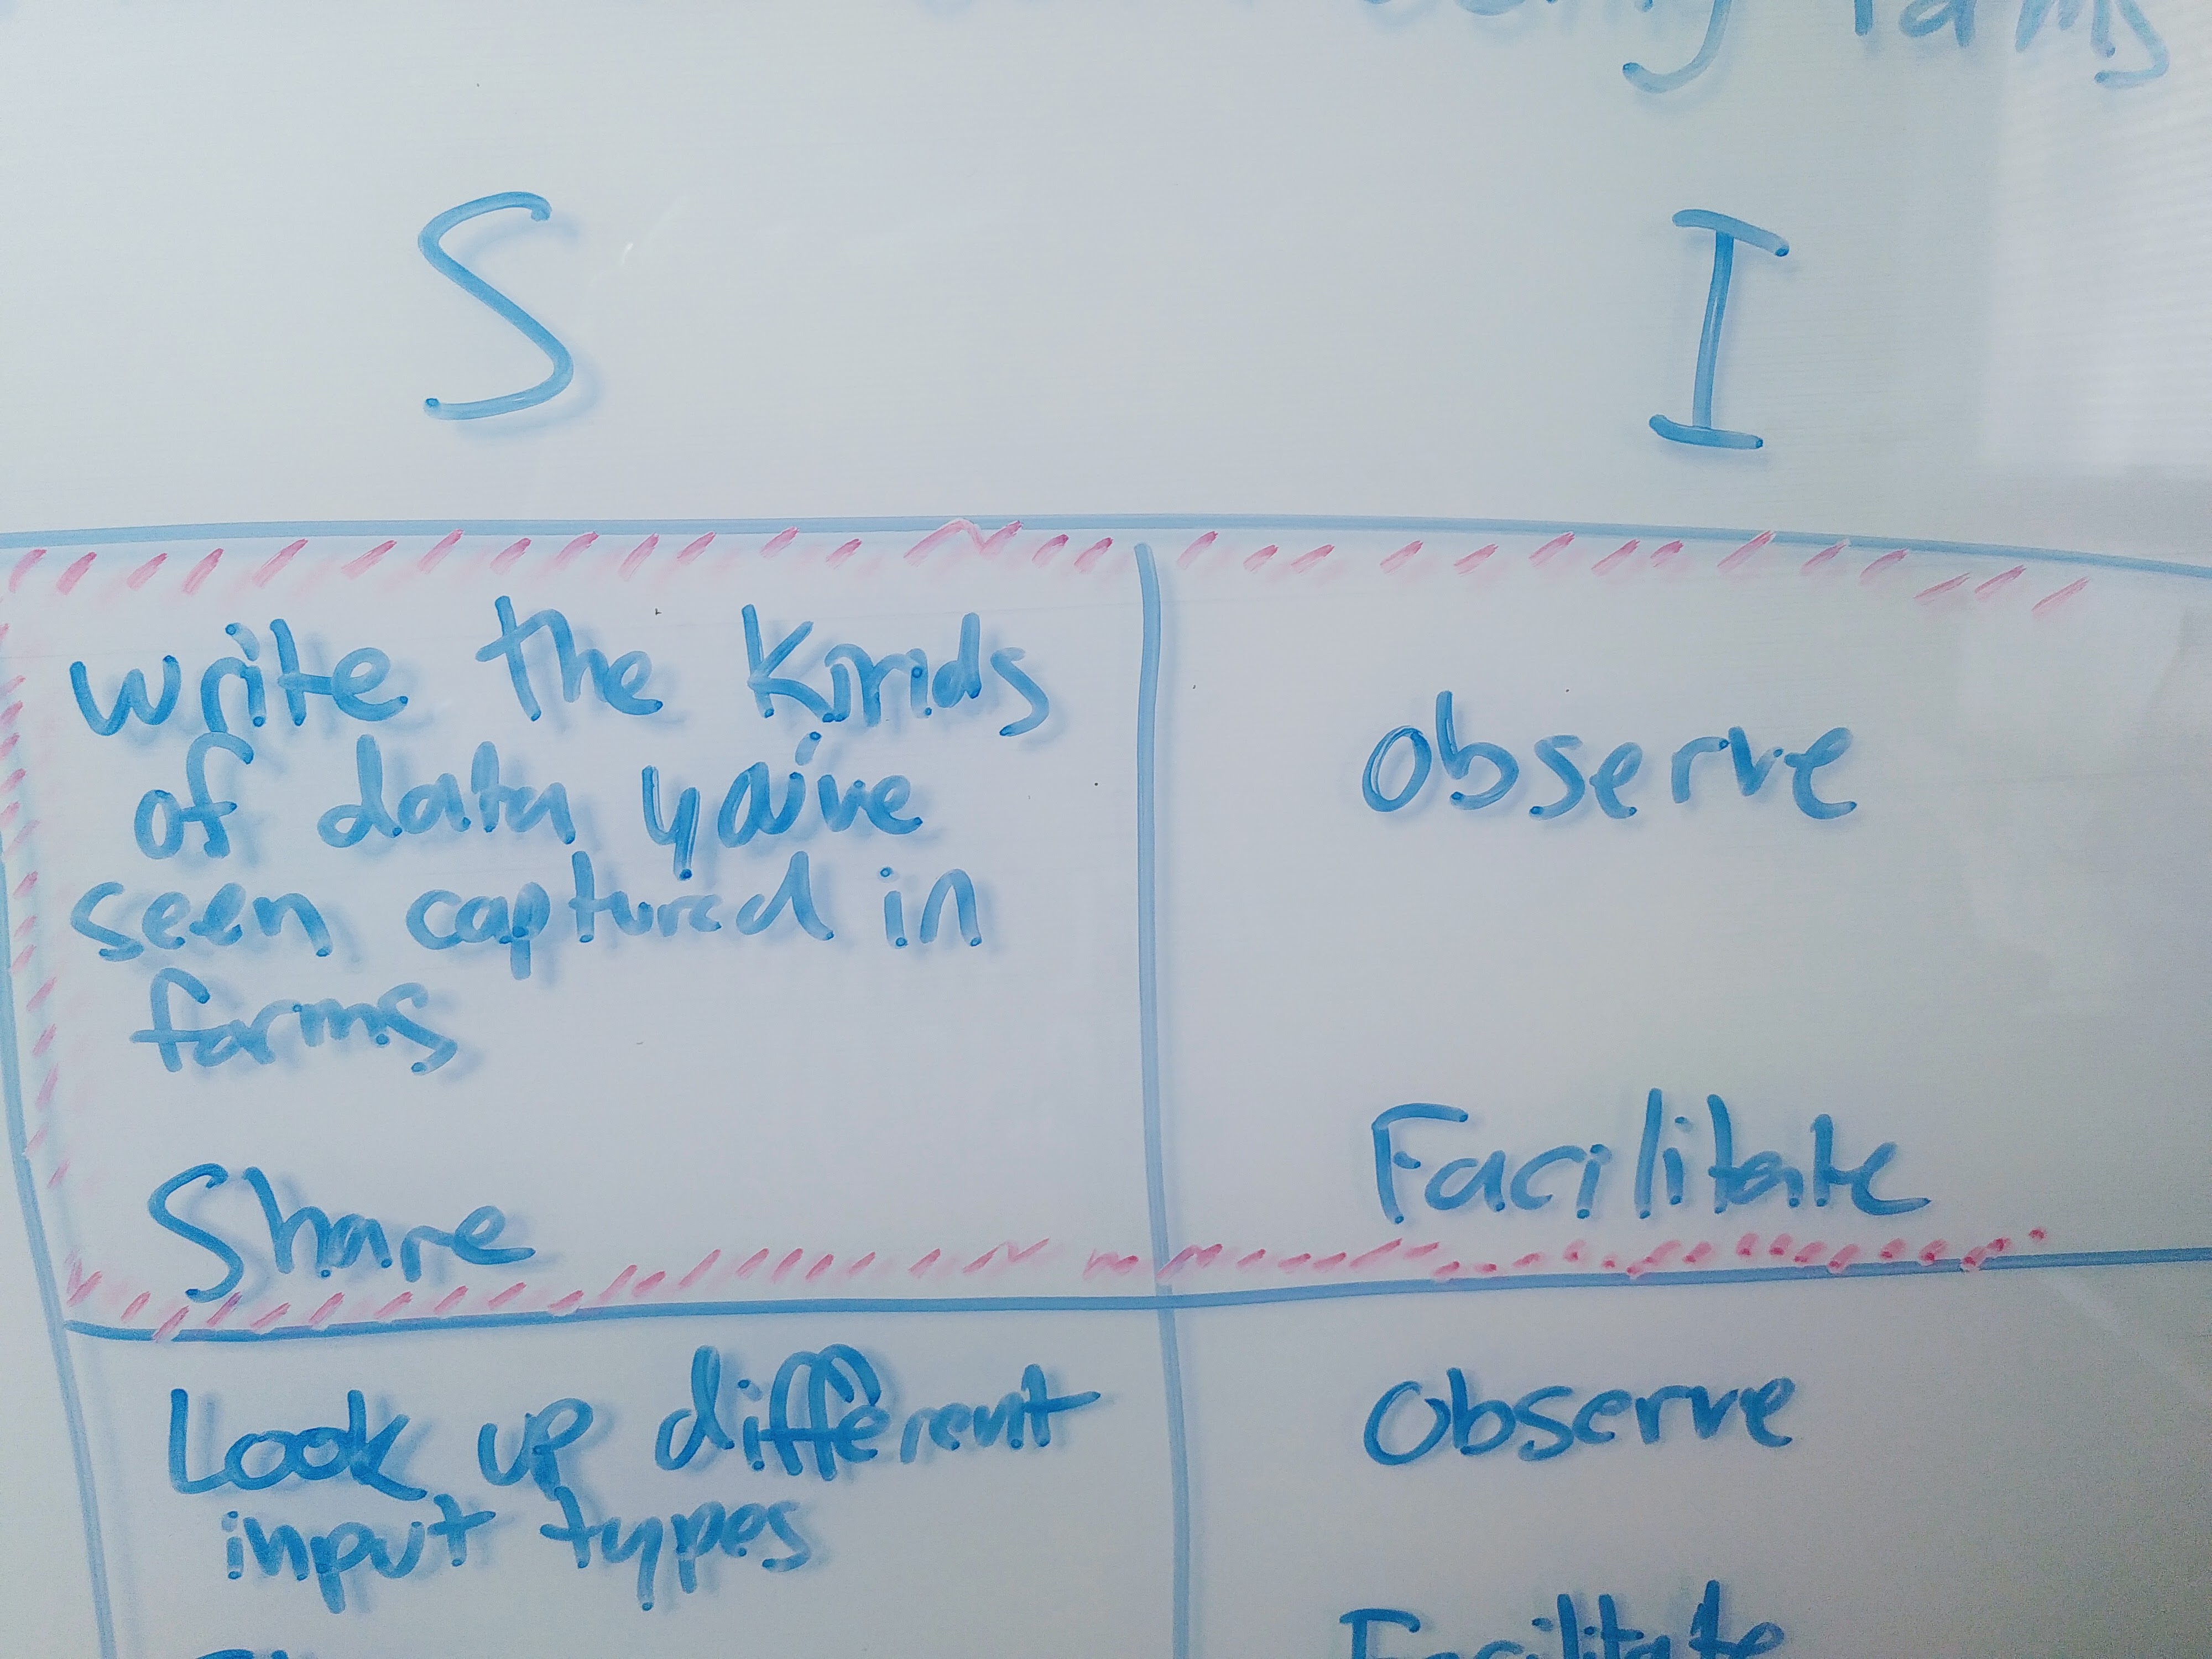 S I
Write the kinds
of data you've
seen captured in
forms
Observe
Share
Facilitate
Look up different
input types
Observe
Facilitate